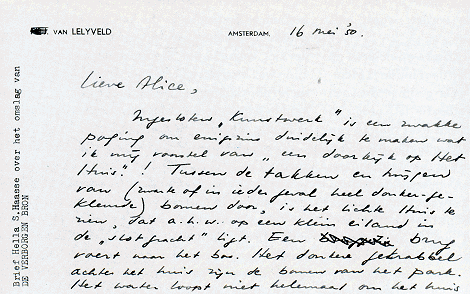 VAN LELYVELD
AMSTERDAM, 16 mei '50.
Lieve Alice,
Ingesloten „Kunstwerk" is een zwakke
poging om enigszins duidelijk te maken wat
ik mij voorstel van „een doorkijk op Het
Huis"! Tussen de takken en twijgen
van (zwart of in ieder geval heel donker-ge-
kleurde) bomen door, is het lichte Huis te
zien, dat a.h.w. op een klein eiland in
de „slotgracht" ligt. Een brug
voert naar het bos. Het donkere gekrabbel
achter het huis zijn de bomen van het park.
Het water loopt niet helemaal om het huis
Brief Hella S.Haasse over het omslag van
DE VERBORGEN BRON